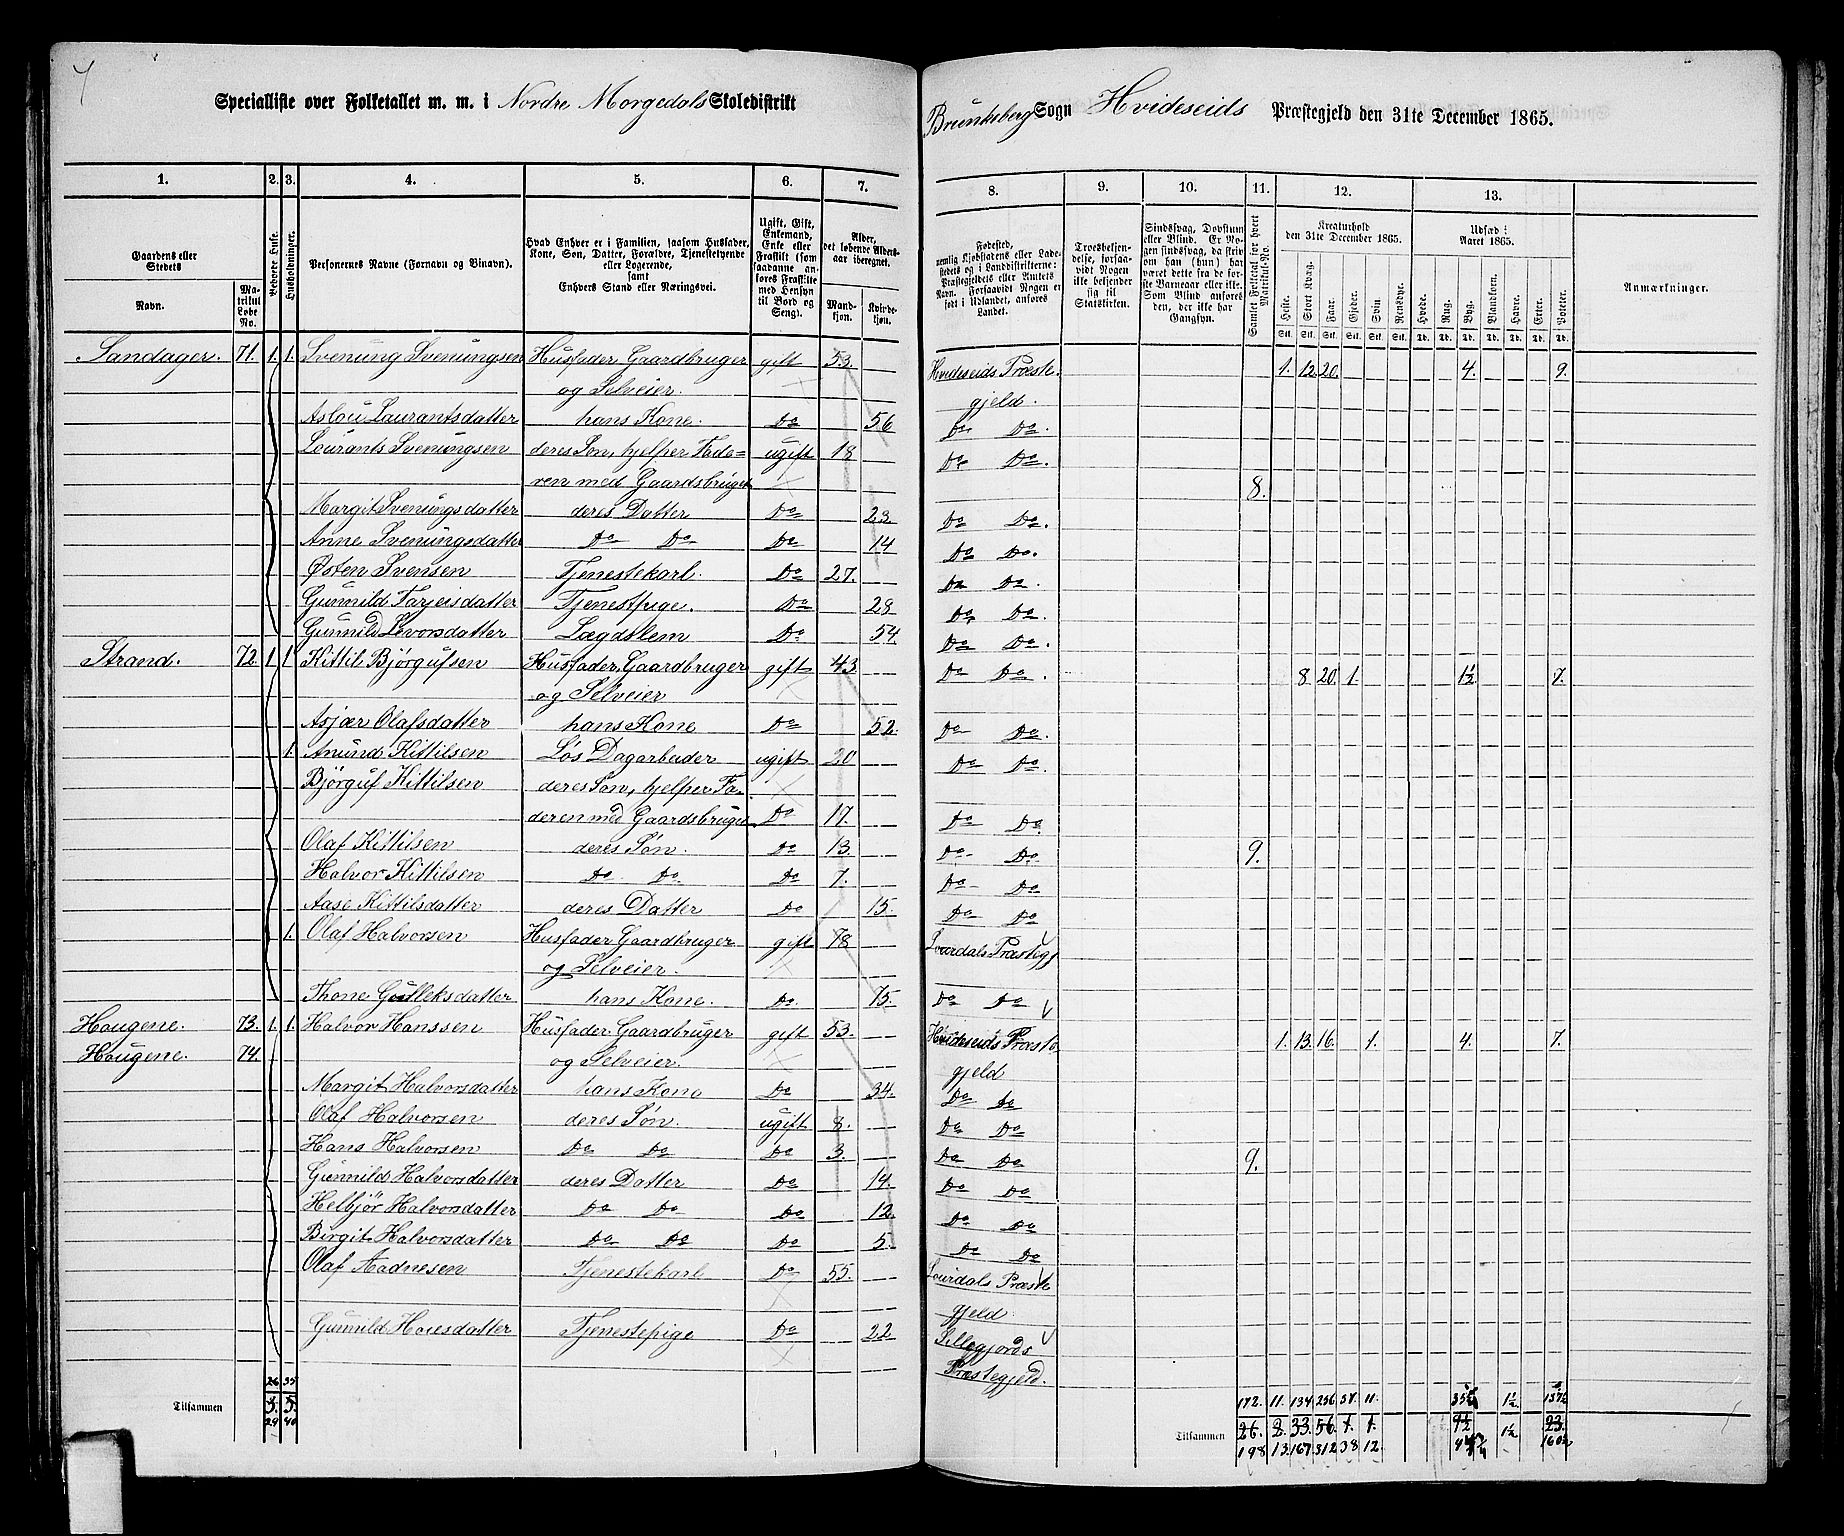 Specialliste over Folketallet m. m. i Nordre Morgedals Skoledistrikt
Brunkeberg Sogn Hvideseids Præstegjeld den 31te December 1865.
1. 2. 3. 4. 5. 6. 7. 8. 9. 10. 11. 12. 13.
Gaardens eller Stedets
Navn.
Matrikul Løbe No.
Beboede Huse.
Husholdninger.
Personernes Navne (Fornavn og Tilnavn).
Hvad Enhver er i Familien, saasom Husfader, Kone, Søn, Datter, Forældre, Tjenestetyende eller Logerende, samt Enhvers Stand eller Næringsvei.
Ugift, Gift, Enkemand, Enke eller Fraskilt (som saadanne anføres Fraskilte med Hensyn til Bord og Seng).
Alder, det løbende Aldersaar iberegnet.
Mandkjøn. Kvindekjøn.
Fødested,
Troesbekjendelse, forsaavidt Nogen ikke bekjender sig til Statskirken.
Sindssvag, Døvstum eller Blind.
Samlet Folketal for hvert Matrikul-No.
Kreaturhold den 31te December 1865.
Heste. Stort Kvæg. Faar. Gjeder. Svin. Rensdyr.
Udsæd i Aaret 1865.
Hvede. Rug. Byg. Blandkorn. Havre. Erter. Poteter.
Anmærkninger.
Sandager. 71. 1. 1. Svenung Svenungsen Husfader, Gaardbruger gift 53. Hvideseids Præste- 1. 12. 20. 4. 9.
og Selveier. gjeld.
Aslou Laurantsdatter hans Kone. Do 56 Do Do.
Lourants Svenungsen deres Søn, hjelper Fade= ugift 18 Do Do.
ren med Gaardsbruget 8.
Margit Svenungsdatter deres Datter Do 23 Do Do.
Anne Svenungsdatter Do Do Do 14 Do Do.
Østen Svensen Tjenestekarl. Do 27. Do Do.
Gunnild Tarjeisdatter Tjenestpige. Do 28 Do Do.
Gunnild Levorsdatter Lægdslem Do 54. Do Do.
Strand. 72. 1. 1 Kittil Bjørgufsen Husfader, Gaardbruger gift 43 Do Do. 8. 20. 1. 1½ 7.
og Selveier
Asjær Olafsdatter hans Kone Do 52. Do Do.
1. Anund Kittilsen Løs Dagarbeider ugift 20 Do Do.
Bjørguf Kittilsen deres Søn, hjelper Fa-
deren med Gaardsbruget Do 17. Do Do.
Olaf Kittilsen deres Søn. Do 13. Do Do 9.
Halvor Kittilsen Do Do. Do 7. Do Do
Aase Kittilsdatter deres Datter Do 15. Do Do
1. Olaf Halvorsen Husfader, Gaardbruger gift 78 Lourdals Præstegj
og Selveier.
Thone Gulleksdatter hans Kone. Do. 75. Do Do
Haugene. 73. 1. 1. Halvor Hanssen Husfader, Gaardbruger gift 53. Hvideseids Præste 1. 13. 16. 1. 4. 7.
Haugene. 74. og Selveier. gjeld
Margit Halvorsdatter hans Kone Do 34. Do Do
Olaf Halvorsen deres Søn. ugift 8. Do Do
Hans Halvorsen Do Do Do 3. Do Do 9.
Gunnild Halvorsdatter deres Datter Do 14. Do Do
Helbjør Halvorsdatter Do Do Do 12. Do Do
Birgit Halvorsdatter Do Do Do 5. Do Do
Olaf Aadnesen Tjenestekarl Do 55. Lourdals Præste
gjeld.
Gunnild Hovesdatter Tjenestepige Do 22 Sillegjords
Præstegjeld.
26 35 172. 11. 134 256 37. 11. 1½
Tilsammen 3. 5. Tilsammen 26. 2. 33. 56. 1. 1. 9½ 1½ 23.
29 40 198 13. 167. 312 38 12. 160½